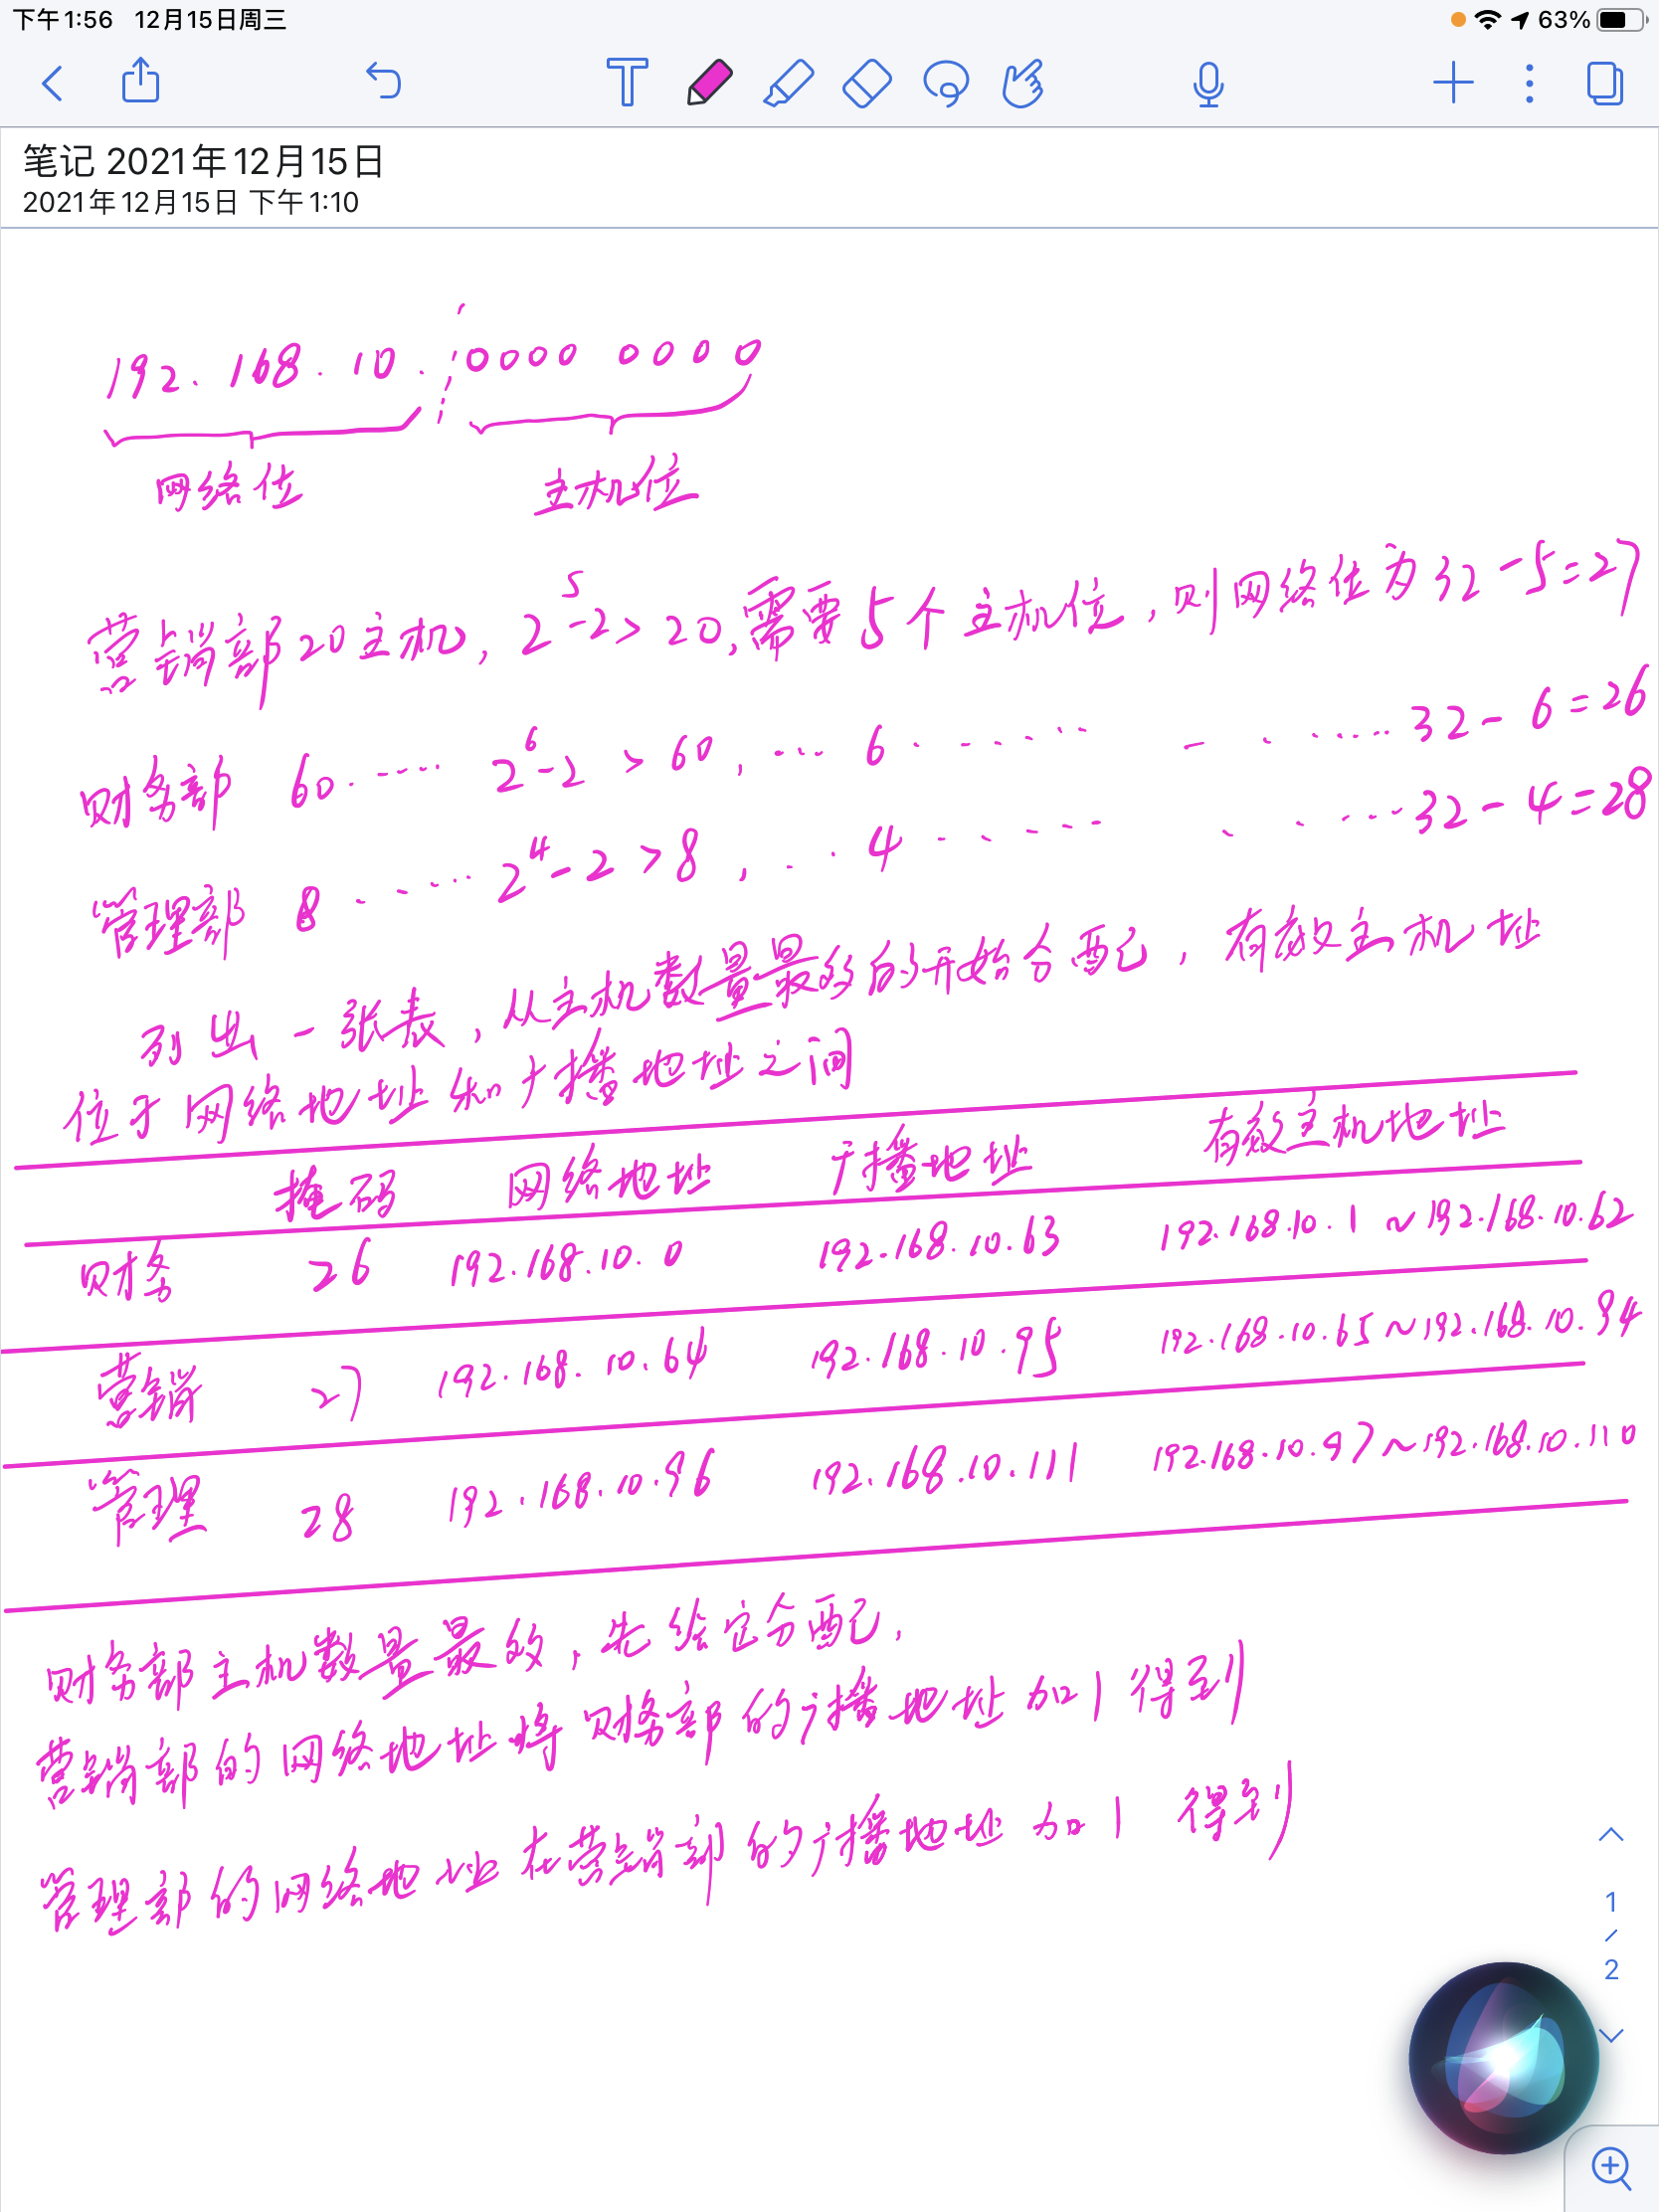 下午1:56 12月15日周三 63%
笔记 2021年12月15日
2021年12月15日 下午1:10
192.168.10.0000 0000
网络位 主机位
营销部20主机, 2^5-2>20,需要5个主机位,则网络位为32-5=27
财务部 60..... 2^6-2>60, ... 6 ...... - . ...... 32-6=26
管理部 8 ..... 2^4-2>8, ... 4 ...... . . .... 32-4=28
列出一张表,从主机数量最多的开始分配,有效主机地址
位于网络地址和广播地址之间
掩码 网络地址 广播地址 有效主机地址
财务 26 192.168.10.0 192.168.10.63 192.168.10.1~192.168.10.62
营销 27 192.168.10.64 192.168.10.95 192.168.10.65~192.168.10.94
管理 28 192.168.10.96 192.168.10.111 192.168.10.97~192.168.10.110
财务部主机数量最多,先给它分配,
营销部的网络地址将财务部的广播地址加1得到
管理部的网络地址在营销部的广播地址加1 得到
1
/
2